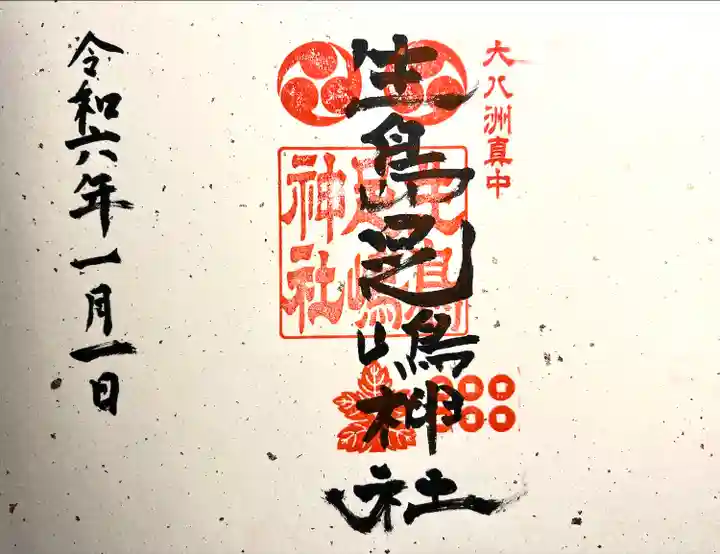 大八洲真中
生島足嶋神社
生島足嶋神社
令和六年一月一日